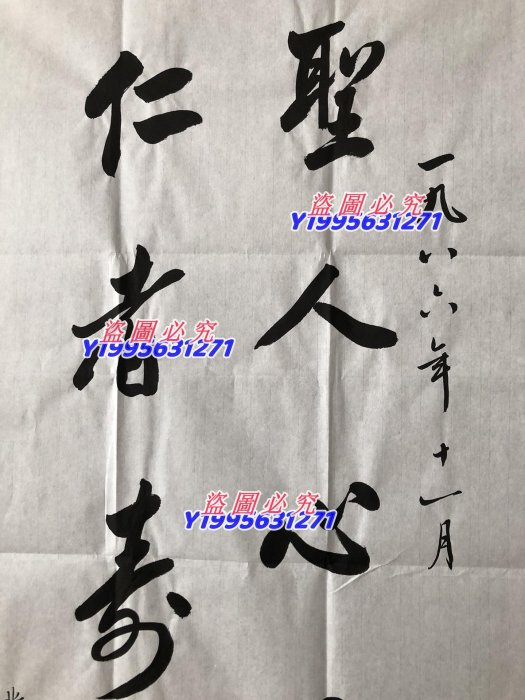 一九八六年十一月
聖人心
仁者寿
盗圖必究
Y1995631271
盗圖必究
Y1995631271
盗圖必究
Y1995631271